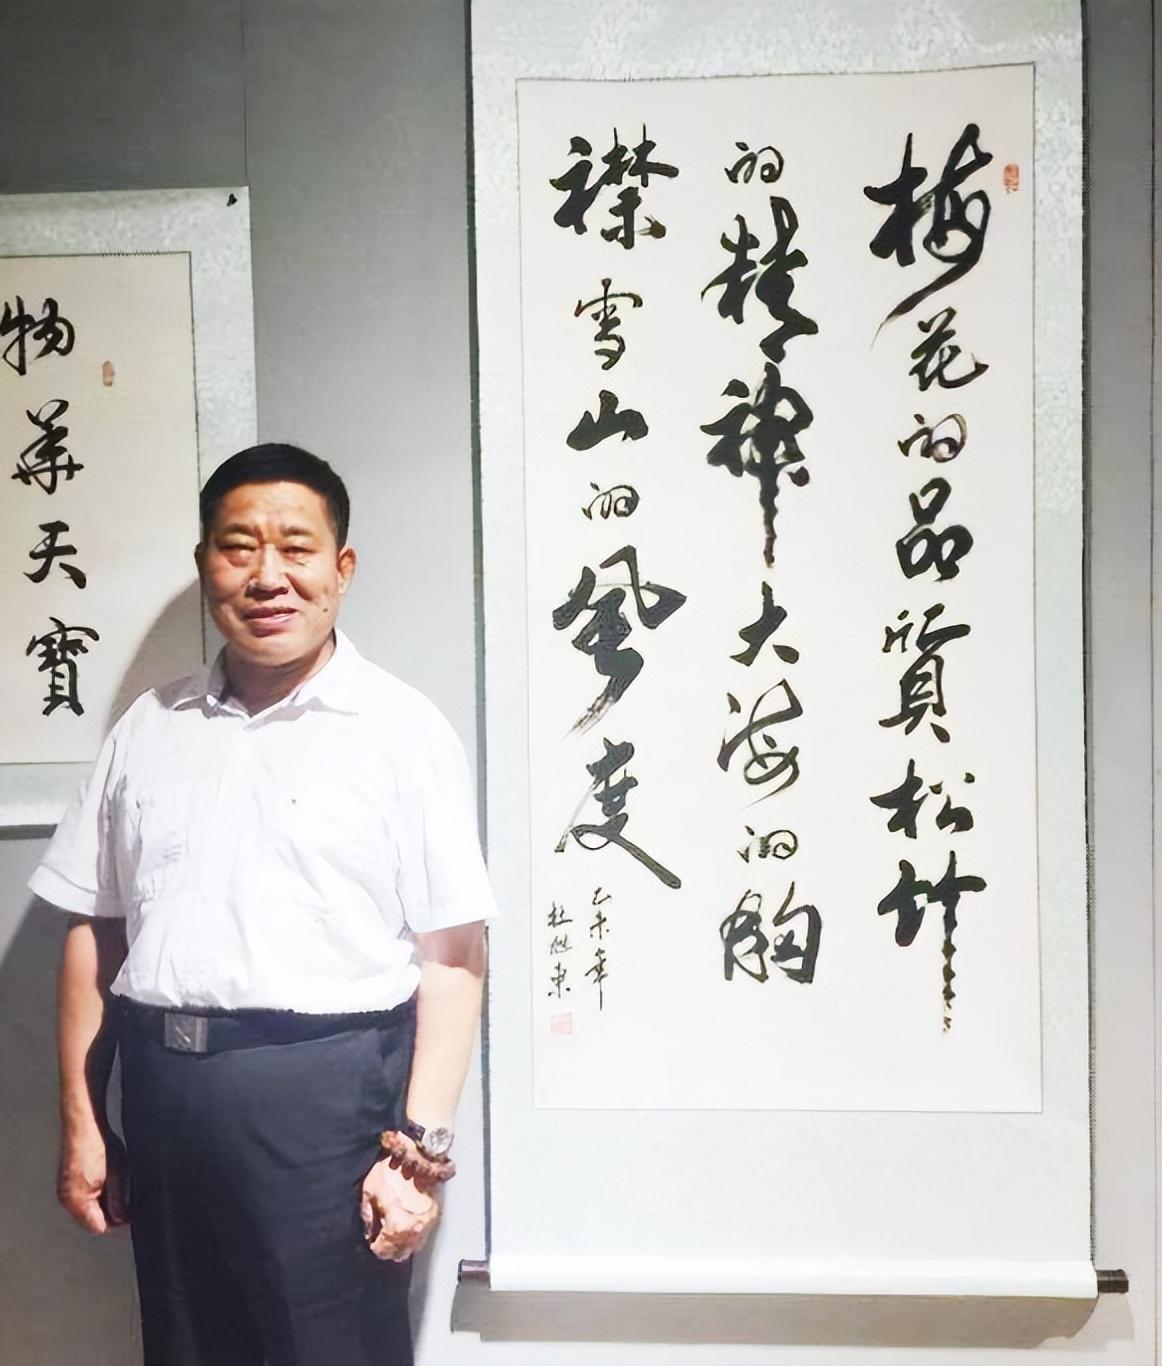 梅花的品質松竹
的精神大海的胸
襟雪山的風度
乙未年
杜旭東
物華天寶